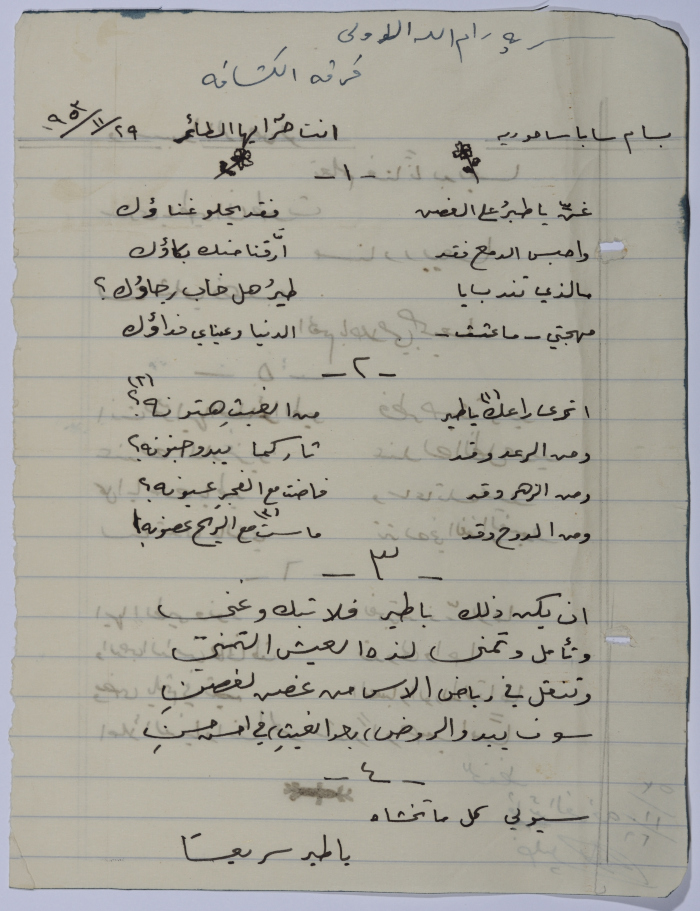 سرية رام الله الاولى
فرقة الكشافة
بسام سابا ساحوريه انت حرّ ايها الطائر ٢٩/١١/١٩٥٣
-١-
غنِّ يا طيرُ على الغصن فقد يحلو غناؤك
واحبس الدمع فقد أرّقنا منك بكاؤك
مالذي تندب يا طيرُ هل خاب رجاؤك؟
مهجتي - ما عشت - الدنيا وعيناي فداؤك
-٢-
اترى راعك (١) يا طير من الغيثِ هتونه (٢)؟
ومن الرعد وقد ثار كما يبدو جنونه؟
ومن الزهر وقد فاضت مع الفجرِ عيونه؟
ومن الدوح وقد ماست (٣) مع الريح غصونه؟
-٣-
ان يكن ذلك يا طير فلا تبك وغنِّ
وتأمل وتمنى، لذة العيش التمنيّ
وتنقل في رياض الاس من غصن لغصنِ
سوف يبدو الروض، بعد الغيثِ، في احسن حسنِ
-٤-
سيولي كل ما تخشاه
يا طير سريعاً